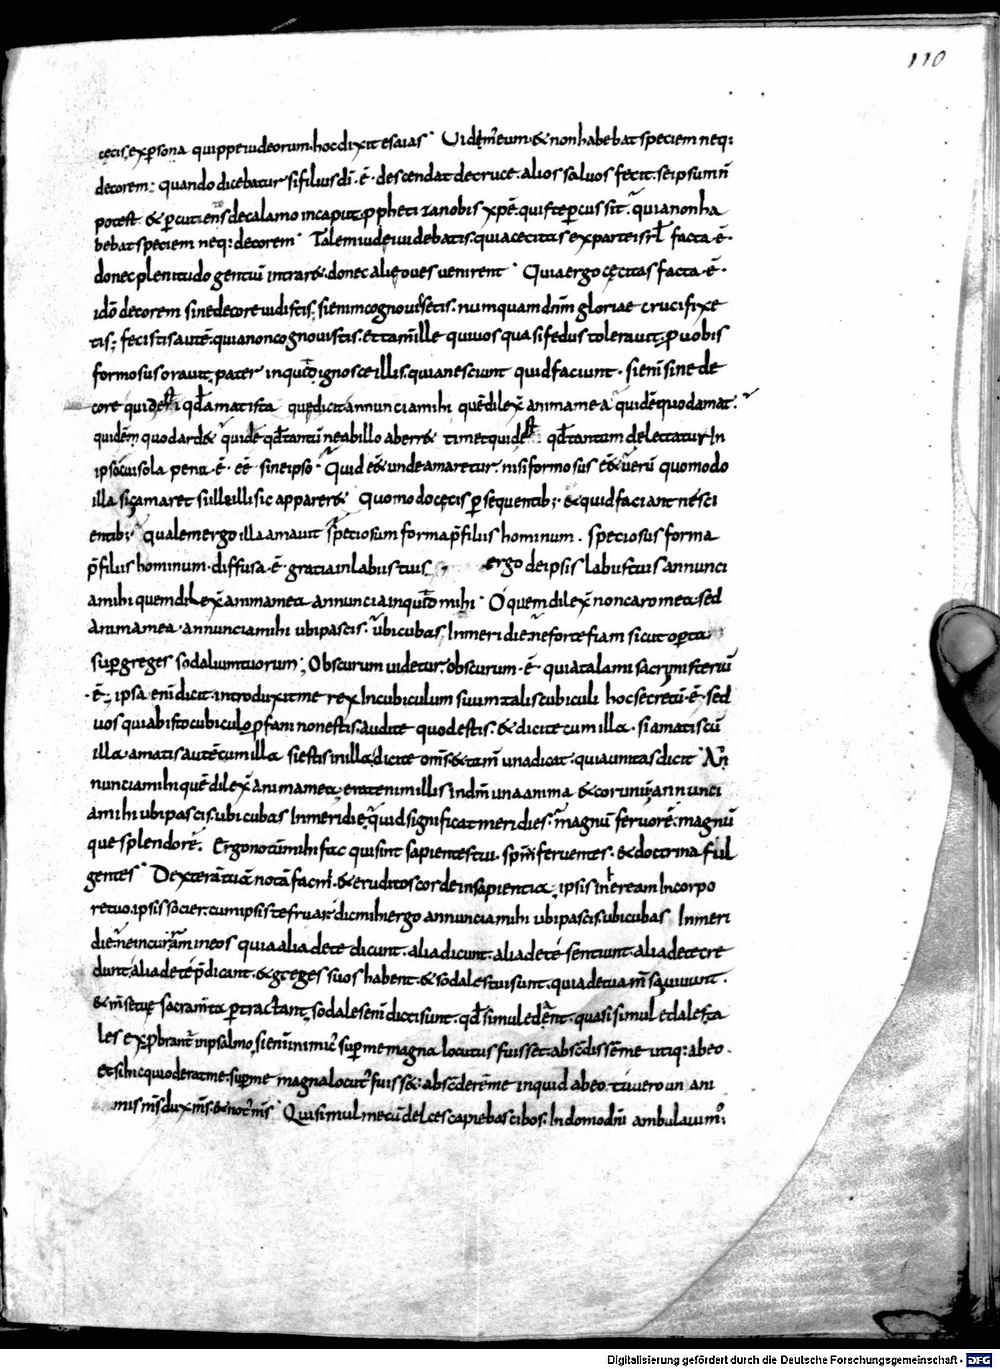 110
cęcis, ex ꝑsona quippe iudeorum. hoc dixit esaias· Uidem̃ eum· & non habebat speciem neq:
decorem: quando dicebatur si filius dī· ē· descendat de cruce· alios saluos fecit· se ipsum ñ
potest· & ꝑcutiens de calamo in caput, ꝓphetiza nobis xp̄e· quis te ꝑcussit· quia non ha
bebat speciem neq: decorem· Talem iudei uidebatis· quia cecitas ex parte isr̄l facta ē·
donec plenitudo gentiū intrar&· donec alię oues uenirent· Quia ergo cęcitas facta· ē·
ido decorem sine decore uidistis; si enim cognouissetis· numquam dn̄m gloriae crucifixe
tis; fecistis autē· quia non cognouistis· et tam̄ ille qui uos quasi fedus tolerauit, ꝓ uobis
formosus orauit, pater inquid ignosce illis· quia nesciunt quid faciunt· si enī sine de
core quid est qd amat ista quę dicit annuncia mihi quē dilex̄ anima mea quid ē quod amat·
quid ē quod ard& quid ē qd tantū ne ab illo aberr& timet quid est qd tantum delectatur In
ipso cui sola pena· ē· eē sine ipso· Quid eēt unde amaretur nisi formosus eēt uerū quomodo
illa sic amaret si ille illi sic apparer& Quomodo cęcis ꝑsequentib;· & quid faciant nesci
entib;· qualem ergo illa amauit speciosum forma p̄ filiis hominum· speciosus forma
p̄ filiis hominum· diffusa· ē· gratia in labiis tuis ergo de ipsis labiis tuis annunci
a mihi quem dilex̄ anima mea annuncia inquid mihi· O quem dilex̄ non caro mea sed
anima mea· annuncia mihi ubi pascis· ubi cubas In meridie· ne forte fiam sicut operta
suꝑ greges sodalium tuorum; Obscurum uidetur· obscurum· ē· quia talami sacri misteriū
·ē·; ipsa enī dicit· introduxit me rex In cubiculum suum· talis cubiculi hoc secretū· ē· sed
uos qui ab isto cubiculo ꝓfani non estis· audite quod estis· & dicite cum illa· si amatis cū
illa· amatis autē cum illa si estis in illa, dicite om̄s· & tam̄ una dicat· quia unitas dicit· An
nuncia mihi quē dilex̄ anima mea, erat enim illis in dn̄m una anima & cor unū, annunci
a mihi ubi pascis· ubi cubas In meridie, quid significat meridies· magnū feruorē· magnū
que splendorē· Ergo notū mihi fac qui sint sapientes tui· spū feruentes· & doctrina ful
gentes· Dexterā tuā notā fac m̄· & eruditos corde in sapientia, ipsis inheream In corpo
re tuo· ipsis socier· cum ipsis te fruar· dic mihi ergo annuncia mihi ubi pascis· ubi cubas In meri
die· ne incurram in eos qui alia de te dicunt· alia dicunt· alia de te sentiunt· alia de te cre
dunt, alia de te p̄dicant· & greges suos habent· & sodales tui sunt· quia de tua m̄sa uiuunt·
& m̄se tue sacram̄ta ꝑtractant, sodales enī dicti sunt· qd simul edant· quasi simul edales· ta
les exꝓbrant in psalmo, si enī inimic᷒ suꝑ me magna locutus fuisset· abscdissē me utiq: ab eo·
et si hic qui oderat me· suꝑ me magna locut᷒ fuiss&· absconderē me inquid ab eo· tu uero un ani
mis m̄s dux m̄s· & not᷒ m̄s Qui simul mecū delces capiebas cibos· In domo dn̄i ambulauim᷒;
Digitalisierung gefördert durch die Deutsche Forschungsgemeinschaft - DFG